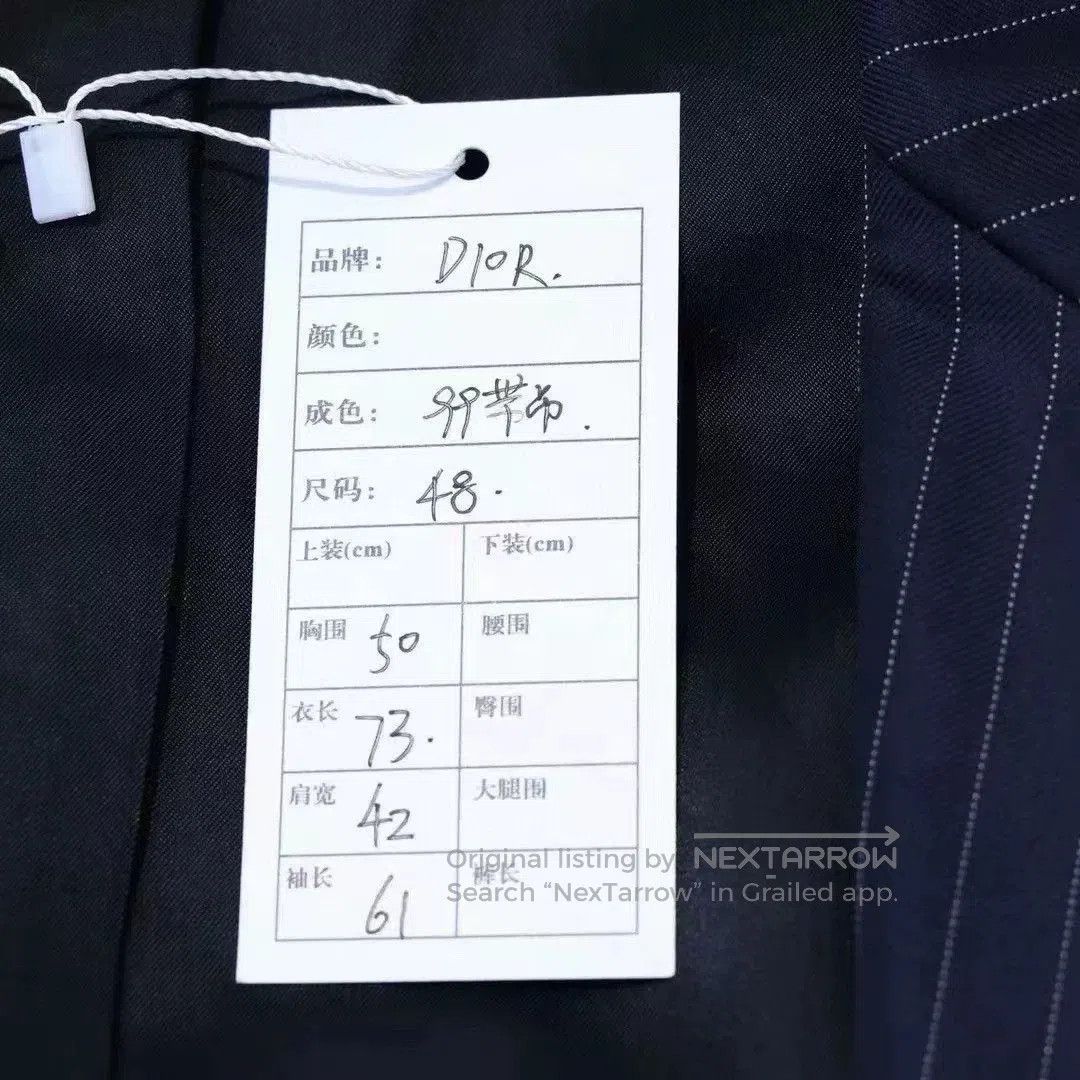 品牌: DIOR.
颜色:
成色: 99带吊.
尺码: 48.
上装(cm) 下装(cm)
胸围 50 腰围
衣长 73. 臀围
肩宽 42 大腿围
袖长 61 裤长
Original listing by NEXTARROW
Search “NexTarrow” in Grailed app.